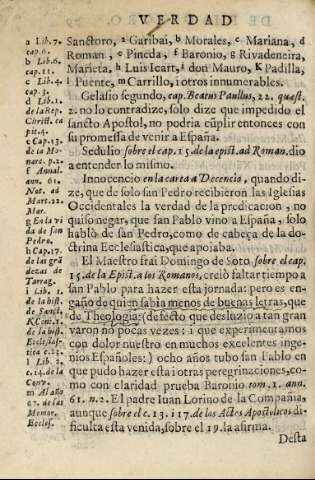 VERDAD
a Lib.7.
cap.6.
b Lib.6.
cap.11.
c Lib.4.
d Lib.1.
de la Rep.
Christ. ca
pit.4.
e Cap.13.
de la Mo-
nare. p.2.
f Annal.
ann. 61.
Not. ad
Mart.22.
Mar.
g En la vi
da de san
Pedro.
h Cap.17.
de las grã
dezas de
Tarrag.
i Lib. 1.
de la hist.
de Sanct.
K Cent.1.
de la hist.
Eclesias-
tica c.23.
l Lib. 2.
c.14. de la
Conv.
m Al año
67. de las
Memor.
Eccles.
Sanctoro, a Garibai, b Morales, c Mariana, d
Roman, e Pineda, f Baronio, g Rivadeneira,
Marieta, h Luis Icart, i don Mauro, K Padilla,
l Puente, m Carrillo, i otros innumerables.
Gelasio segundo, cap. Beatus Paullus, 22. quæst.
2. no lo contradize, solo dize que impedido el
sancto Apostol, no podria cũplir entonces con
su promessa de venir a España.
Sedulio sobre el cap. 15. de la epist. ad Roman. dio
a entender lo mismo.
Innocencio en la carta a Decencio, quando di-
ze, que de solo san Pedro recibieron las Iglesias
Occidentales la verdad de la predicacion, no
quiso negar, que san Pablo vino a España, solo
habló de san Pedro, como de cabeça de la do-
ctrina Ecclesiastica, que apoiaba.
El Maestro frai Domingo de Soto sobre el cap.
15. de la Epist. a los Romanos, creiò faltar tiempo a
san Pablo para hazer esta jornada: pero es en-
gaño de quien sabia menos de buenas letras, que
de Theologia: (defecto que desluzio a tan gran
varon no pocas vezes: i que experimentamos
con dolor nuestro en muchos excelentes inge-
nios Españoles:) ocho años tubo san Pablo en
que pudo hazer esta i otras peregrinaciones, co-
mo con claridad prueba Baronio tom. 1. ann.
61. n.2. El padre Iuan Lorino de la Compañia,
aunque sobre el c.13. i 17. de los Actos Apostolicos di-
ficulta esta venida, sobre el 19. la afirma.
Desta